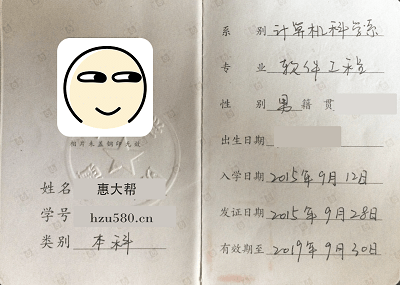 相片未盖钢印无效
姓名 惠大帮
学号 hzu580.cn
类别 本科
系别 计算机科学系
专业 软件工程
性别 男 籍贯
出生日期
入学日期 2015年9月12日
发证日期 2015年9月28日
有效期至 2019年9月30日